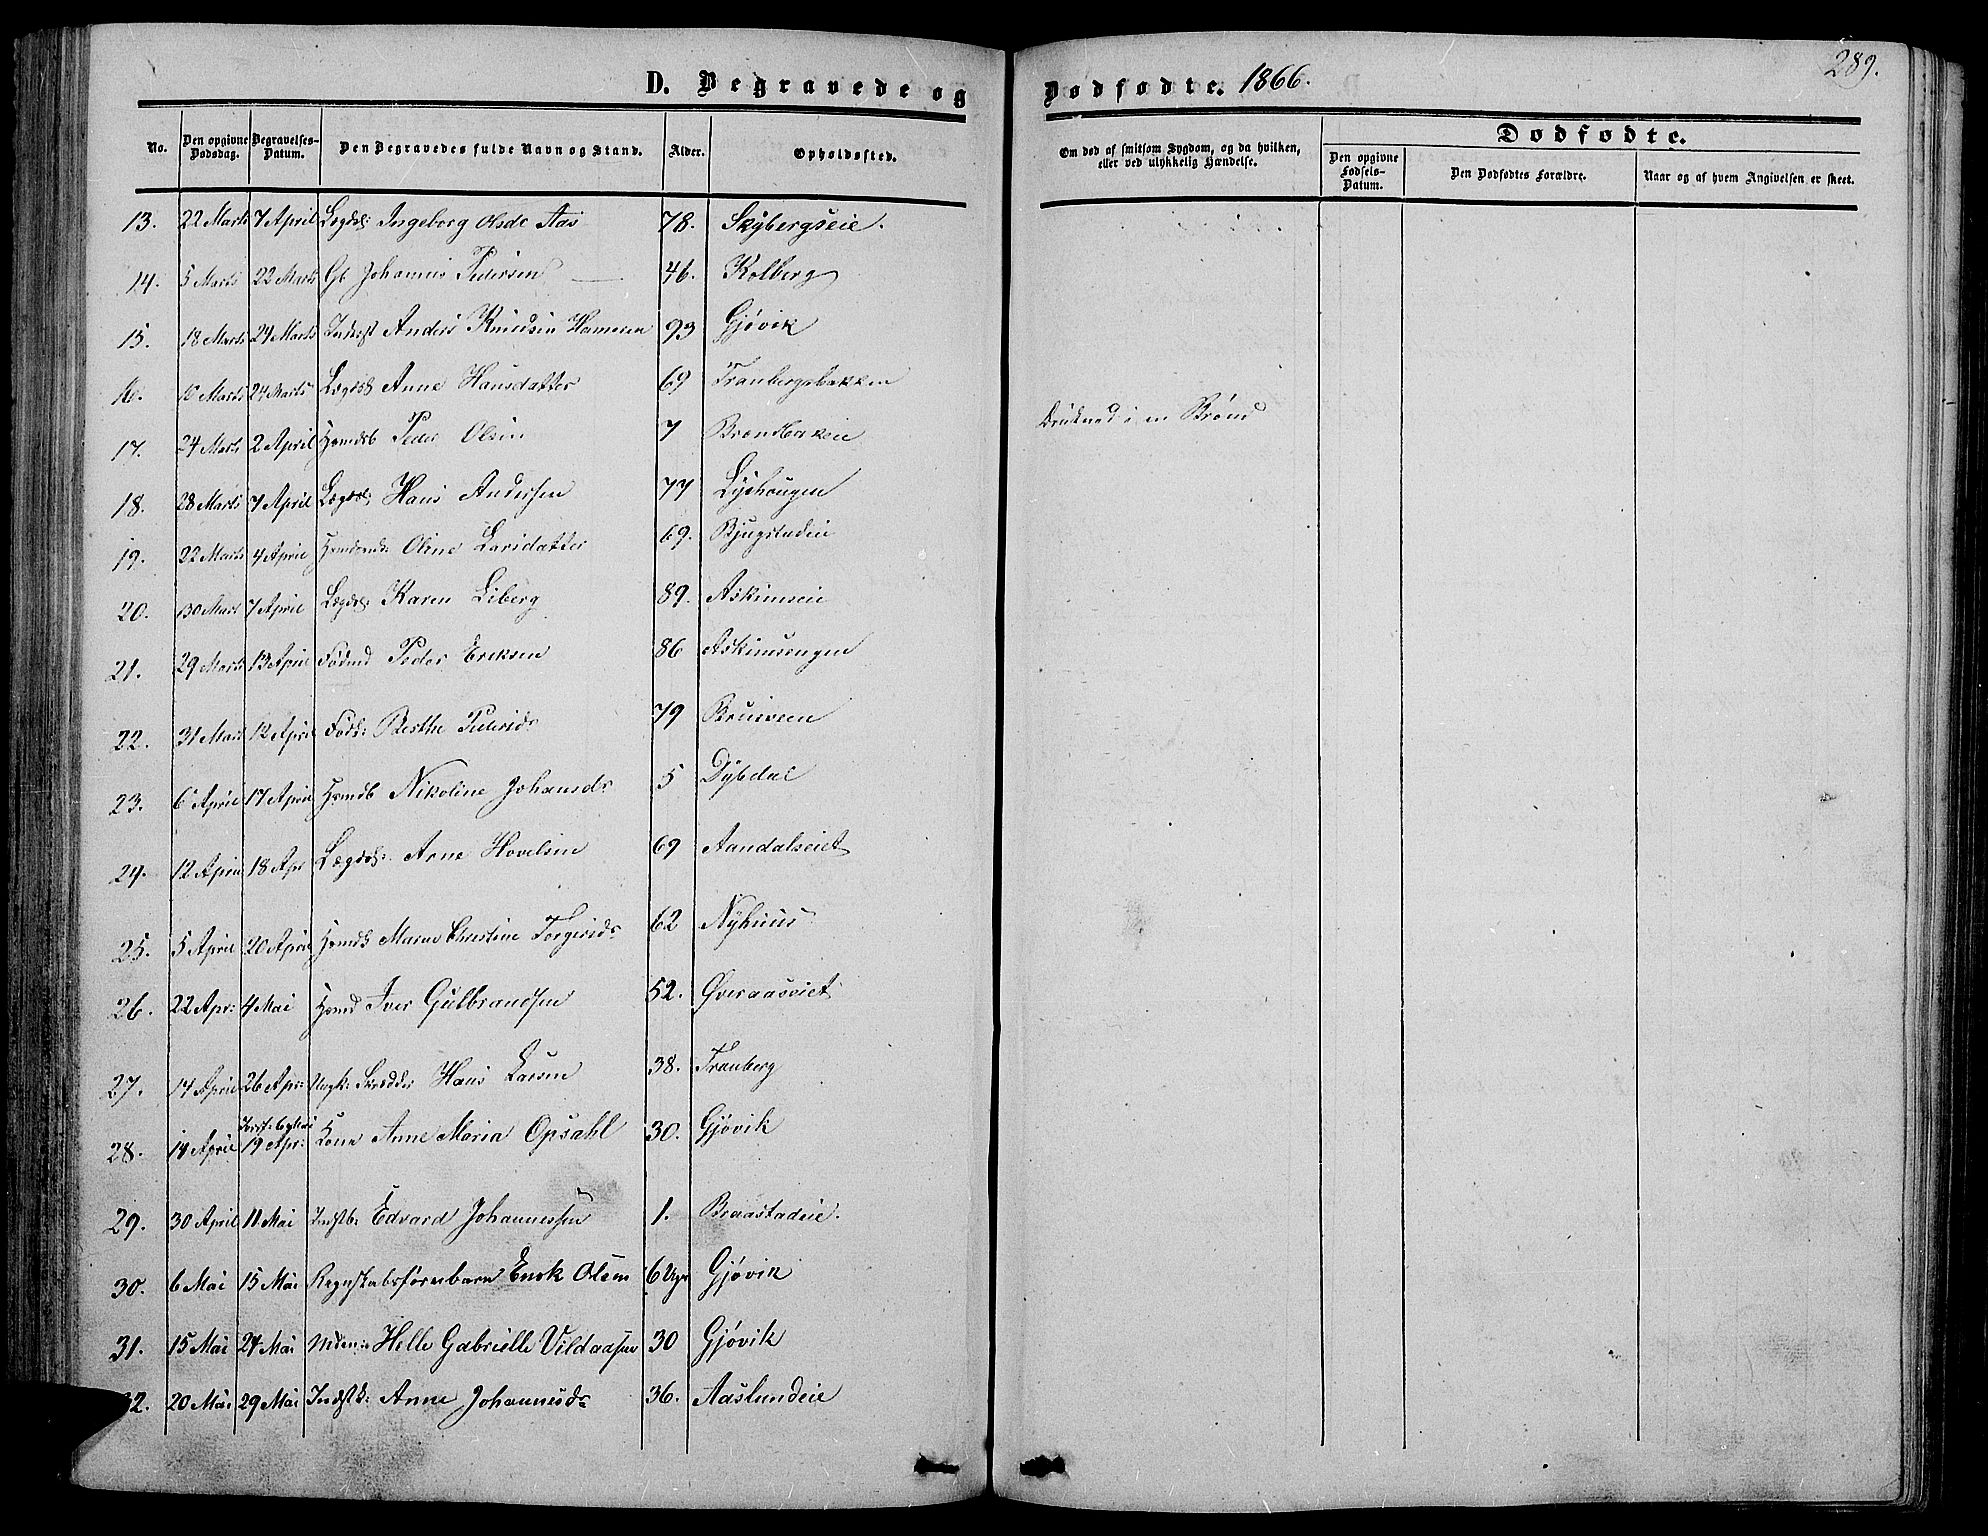 289.
D. Begravede og Dødfødte. 1866.
No. Den opgivne Dødsdag. Begravelses-Datum. Den Begravedes fulde Navn og Stand. Alder. Opholdssted. Om død af smitsom Sygdom, og da hvilken, eller ved ulykkelig Hændelse. Dødfødte.
Den opgivne Fødsels-Datum. Den Dødfødtes Forældre. Naar og af hvem Angivelsen er skeet.
13. 22 Marts 7 April Lægdsl: Ingeborg Olsdr Aas 78. Skybergseie.
14. 5 Marts 22 Marts Gb Johannes Pedersen — 46. Kolberg
15. 18 Marts 24 Marts Anders Knudsen Hameren 93 Gjøvik
16. 16 Marts 24 Marts Lægdsl Anne Hansdatter 69 Tranbergsbakken
17. 24 Marts 2 April Hsmdsb Peder Olsen 7 Druknet i en Brønd
18. 28 Marts 7 April Lægdsl: Hans Andersen 77 Lyshaugen
19. 22 Marts 4 April Oline Larsdatter 69. Bjugstadeie
20. 30 Mart 7 April Lægdsl: Karen Liberg 89. Askimseie
21. 29 Marts 13 April Føderd Peder Eriksen 86 Askimsengen
22. 31 Mart 12 April Føds: Berthe Pedersdr 79 Bruisveen
23. 6 April 17 April Hsmdb Nikoline Johansdr 5 Dysdal
24. 12 April 18 Apr Lægdsl: Arne Hovelsen 69 Aandalseiet
25. 5 April 20 April Hsmdk Maren Christine Torgersdr 62 Nyhuus
26. 22 Apr: 4 Mai Hsmd Iver Gulbrandsen 52. Øveraaseiet
27. 14 April 26 Apr: Ungk: Skrædder Hans Larsen 38. Tranberg
28. 14 April 19 Apr: Kone Anne Maria Opsahl 30. Gjøvik
29. 30 April 11 Mai Indstb: Edvard Johannessen 1. Braastadeie.
30. 6 Mai 15 Mai Enok Olsen 6 Uger Gjøvik
31. 15 Mai 24 Mai Helle Gabrielle Vildaasen 30 Gjøvik
32. 20 Mai 29 Mai Indstk: Anne Johannesdr 36. Aaslundeie